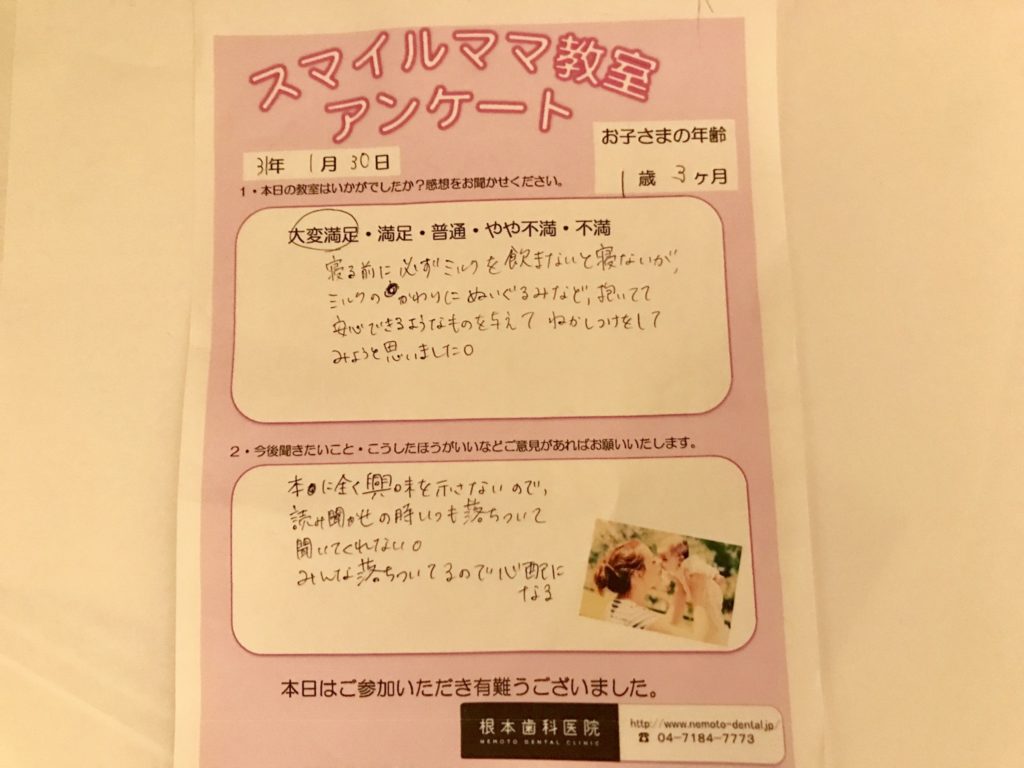 スマイルママ教室
アンケート
お子さまの年齢
31年 1月 30日
1歳 3ヶ月
1・本日の教室はいかがでしたか？感想をお聞かせください。
大変満足・満足・普通・やや不満・不満
寝る前に必ずミルクを飲まないと寝ないが、
ミルクのかわりにぬいぐるみなど、抱いてて
安心できるようなものを与えて ねかしつけをして
みようと思いました。
2・今後聞きたいこと・こうしたほうがいいなどご意見があればお願いいたします。
本に全く興味を示さないので、
読み聞かせの時いつも落ちついて
聞いてくれない。
みんな落ちついてるので心配に
なる
本日はご参加いただき有難うございました。
根本歯科医院
NEMOTO DENTAL CLINIC
http://www.nemoto-dental.jp/
☎ 04-7184-7773